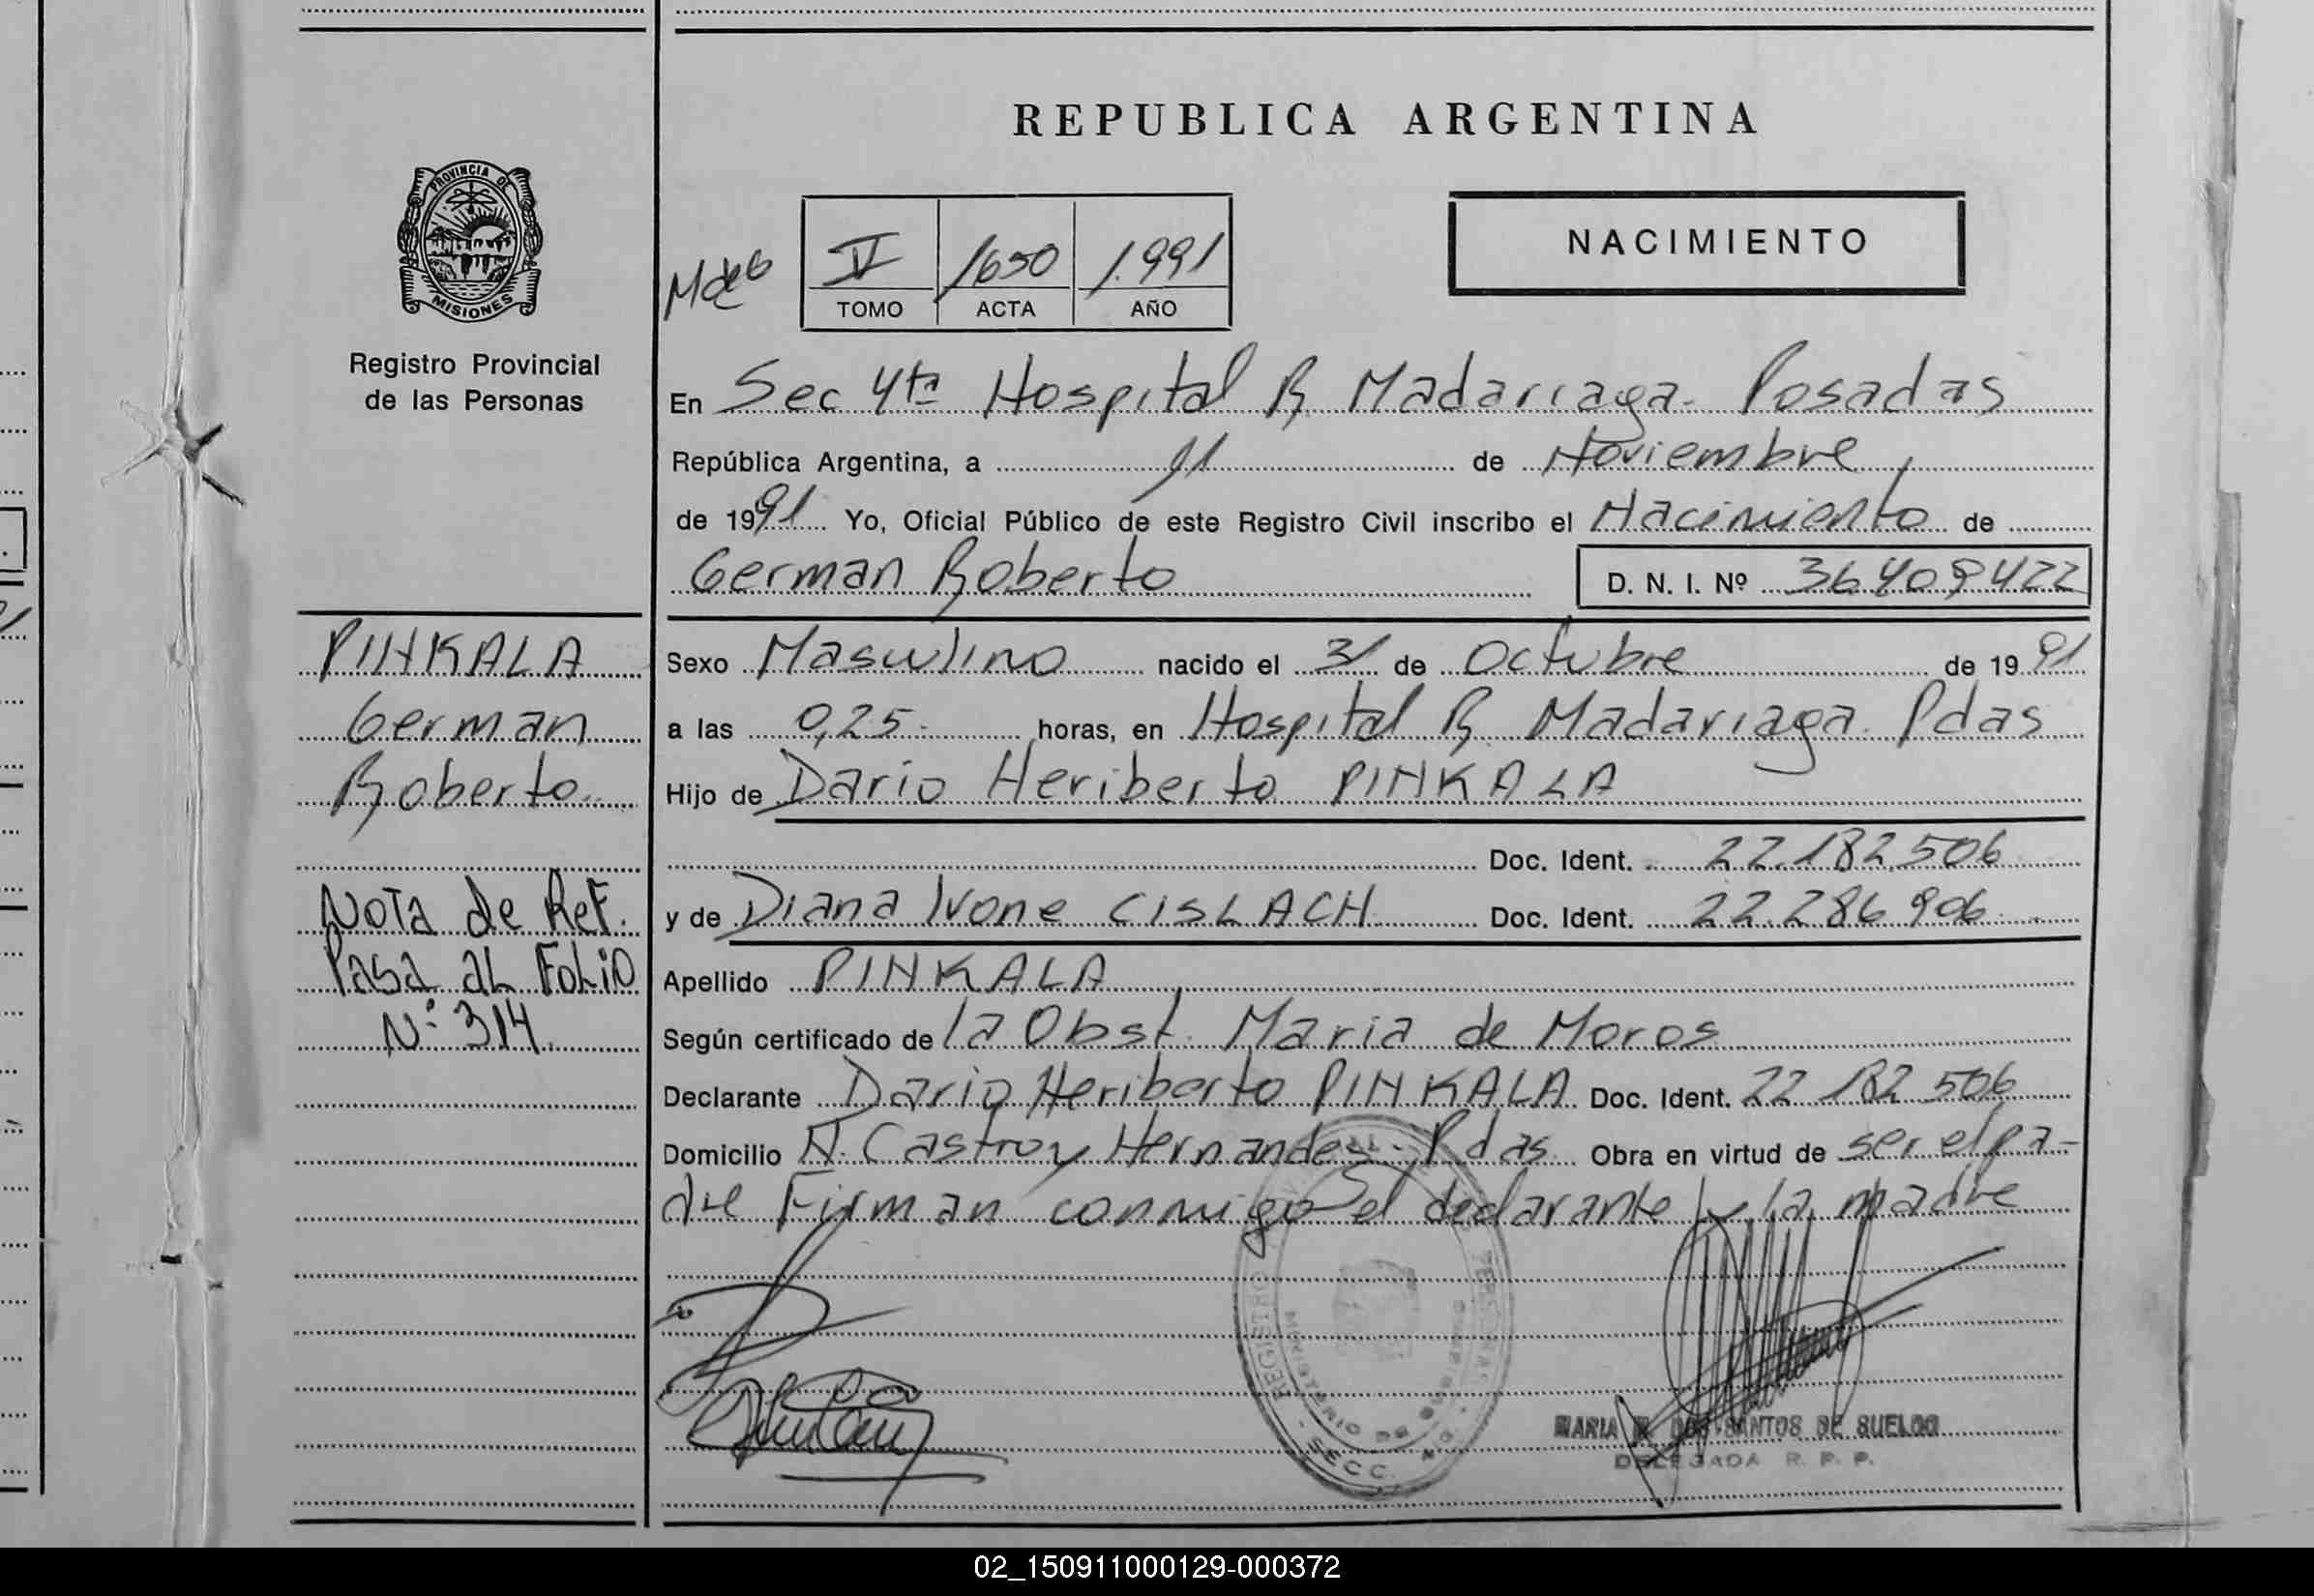 REPUBLICA ARGENTINA
PROVINCIA DE
MISIONES
Registro Provincial
de las Personas
V 1650 1.991
TOMO ACTA AÑO
NACIMIENTO
En Sec 4ta Hospital R. Madariaga - Posadas
República Argentina, a 11 de Noviembre
de 1991 Yo, Oficial Público de este Registro Civil inscribo el Nacimiento de
German Roberto D. N. I. Nº 36409422
PINKALA
German
Roberto
Sexo Masculino nacido el 31 de Octubre de 1991
a las 0,25 horas, en Hospital R. Madariaga. Pdas
Hijo de Dario Heriberto PINKALA
Doc. Ident. 22.182.506
y de Diana Ivone CISLACH Doc. Ident. 22.286.906
Nota de Ref.
Pasa al Folio
N° 314
Apellido PINKALA
Según certificado de la Obst. Maria de Moros
Declarante Dario Heriberto PINKALA Doc. Ident. 22 182 506
Domicilio N. Castro y Hernandez - Pdas Obra en virtud de ser el pa-
dre Firman conmigo el declarante y la madre
REGISTRO
MINISTERIO DE
SECC.
MARIA DOS SANTOS DE SUELDO
DELEGADA R. P. P.
02_150911000129-000372